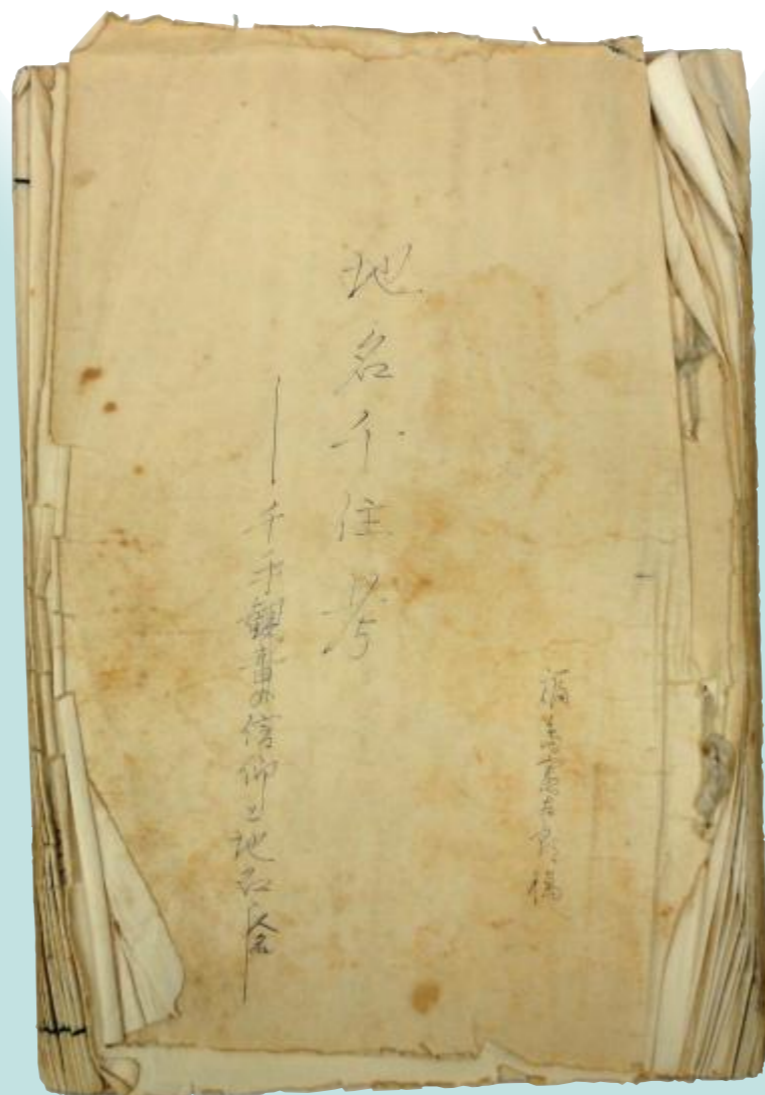 福島憲太郎稿
地名千住考
―千手観音の信仰と地名